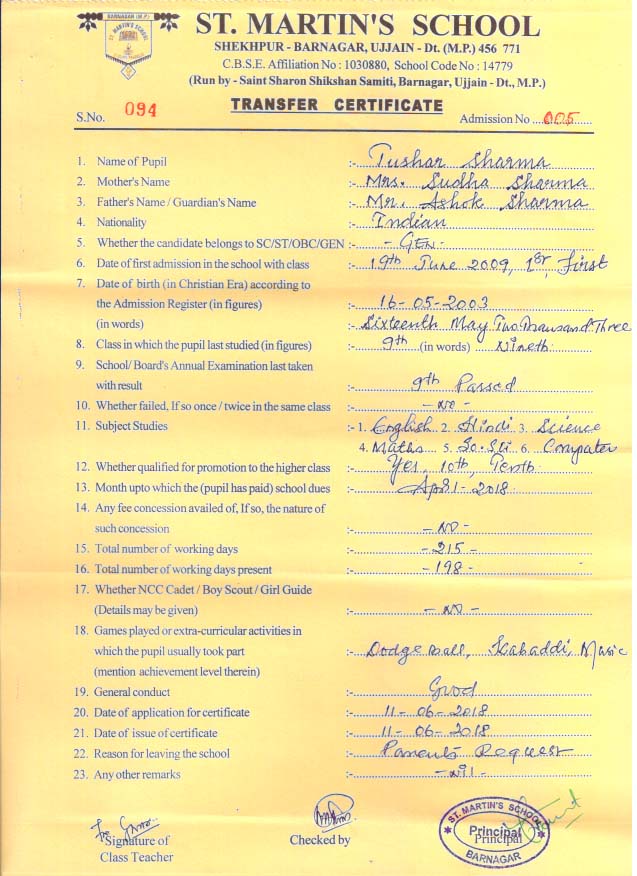 BARNAGAR (M.P.)
ST. MARTIN'S SCHOOL
ST. MARTIN'S SCHOOL
SHEKHPUR - BARNAGAR, UJJAIN - Dt. (M.P.) 456 771
C.B.S.E. Affiliation No : 1030880, School Code No : 14779
(Run by - Saint Sharon Shikshan Samiti, Barnagar, Ujjain - Dt., M.P.)
TRANSFER CERTIFICATE
S.No. 094 Admission No 005
1. Name of Pupil :- Tushar Sharma
2. Mother's Name :- Mrs. Sudha Sharma
3. Father's Name / Guardian's Name :- Mr. Ashok Sharma
4. Nationality :- Indian
5. Whether the candidate belongs to SC/ST/OBC/GEN :- - GEN -
6. Date of first admission in the school with class :- 19th June 2009, 1st, First
7. Date of birth (in Christian Era) according to
the Admission Register (in figures) :- 16-05-2003
(in words) :- Sixteenth May Two Thousand Three
8. Class in which the pupil last studied (in figures) :- 9th (in words) Nineth
9. School/ Board's Annual Examination last taken
with result :- 9th Passed
10. Whether failed, If so once / twice in the same class :- - NO -
11. Subject Studies :- 1. English 2. Hindi 3. Science
4. Maths 5. So. Sti 6. Computer
12. Whether qualified for promotion to the higher class :- Yes, 10th, Tenth
13. Month upto which the (pupil has paid) school dues :- April - 2018
14. Any fee concession availed of, If so, the nature of
such concession :- - NO -
15. Total number of working days :- - 215 -
16. Total number of working days present :- - 198 -
17. Whether NCC Cadet / Boy Scout / Girl Guide
(Details may be given) :- - NO -
18. Games played or extra-curricular activities in
which the pupil usually took part :- Dodge Ball, Kabaddi, Music
(mention achievement level therein)
19. General conduct :- Good
20. Date of application for certificate :- 11-06-2018
21. Date of issue of certificate :- 11-06-2018
22. Reason for leaving the school :- Parents Request
23. Any other remarks :- - Nil -
Signature of
Class Teacher
Checked by
ST. MARTIN'S SCHOOL
Principal
Principal
BARNAGAR